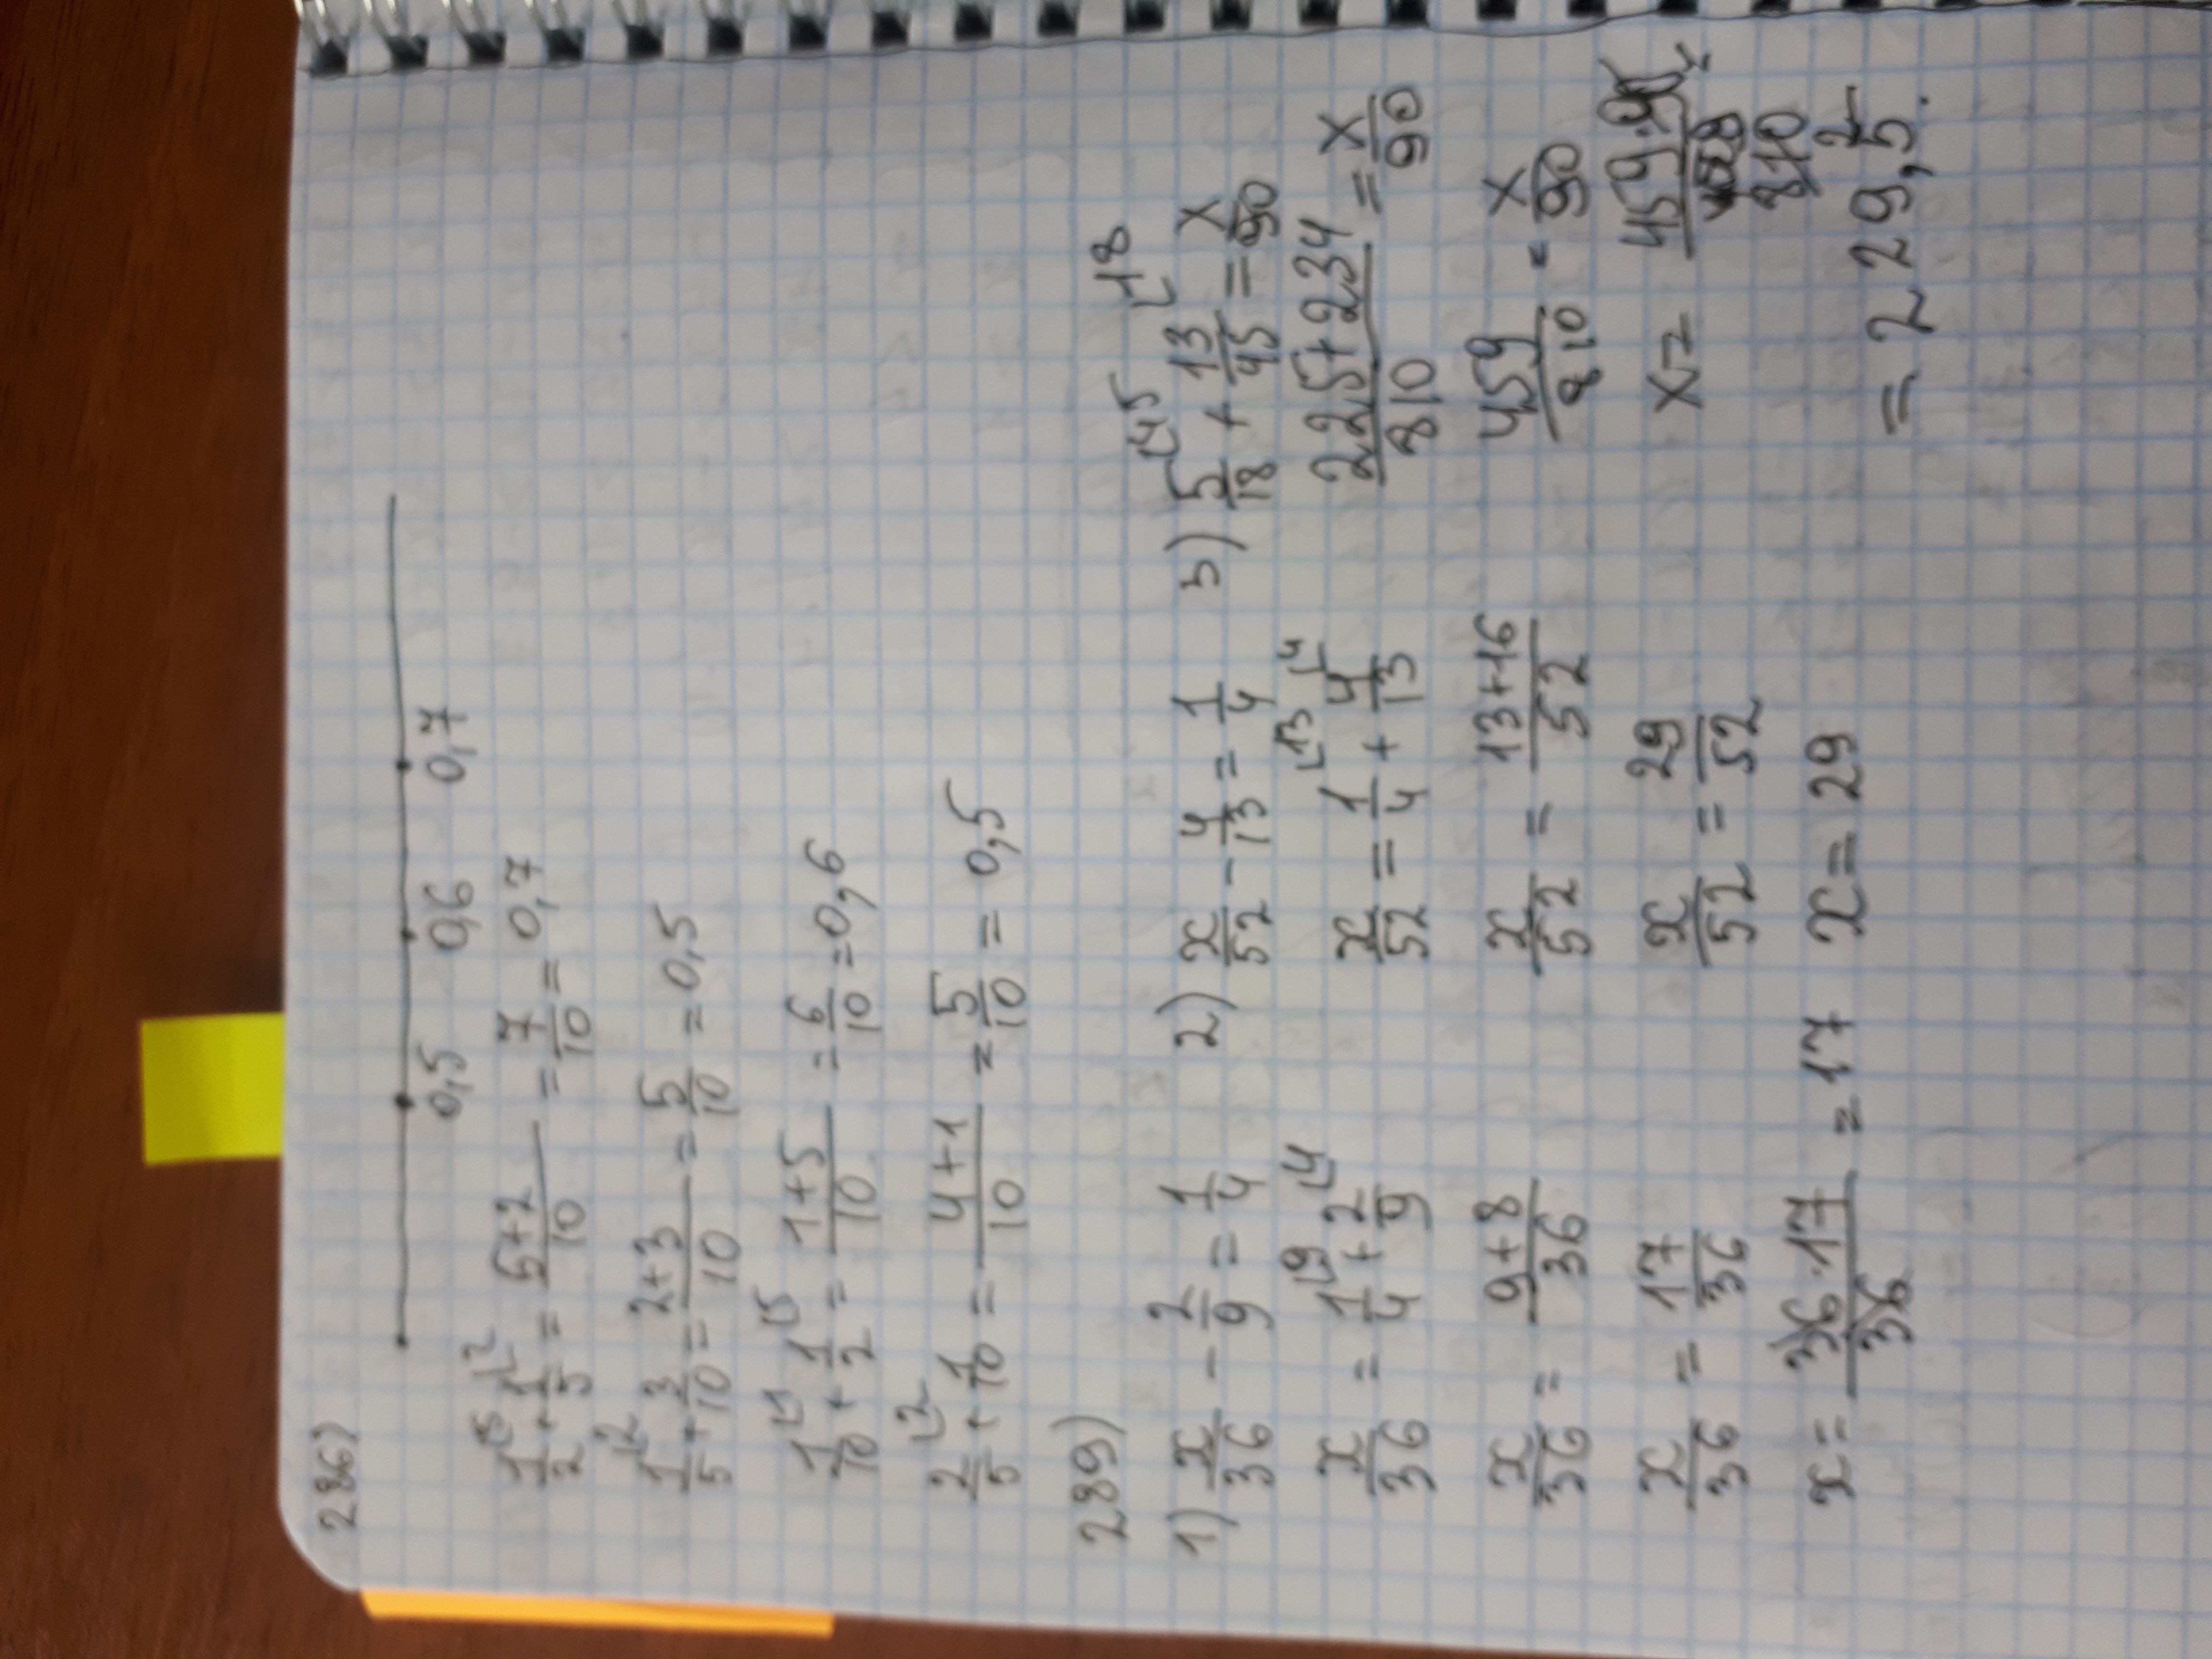 286)
0,5 0,6 0,7
1/2 ⌊5 + 1/5 ⌊2 = 5+2/10 = 7/10 = 0,7
1/5 ⌊2 + 3/10 = 2+3/10 = 5/10 = 0,5
1/10 ⌊1 + 1/2 ⌊5 = 1+5/10 = 6/10 = 0,6
2/5 ⌊2 + 1/10 = 4+1/10 = 5/10 = 0,5
289)
1) x/36 - 2/9 = 1/4
x/36 = 1/4 ⌊9 + 2/9 ⌊4
x/36 = 9+8/36
x/36 = 17/36
x = 36·17/36 = 17
2) x/52 - 4/13 = 1/4
x/52 = 1/4 ⌊13 + 4/13 ⌊4
x/52 = 13+16/52
x/52 = 29/52
x = 29
3) 5/18 ⌊45 + 13/45 ⌊18 = x/90
225+234/810 = x/90
459/810 = x/90
x = 459·90/810
= 229,5.